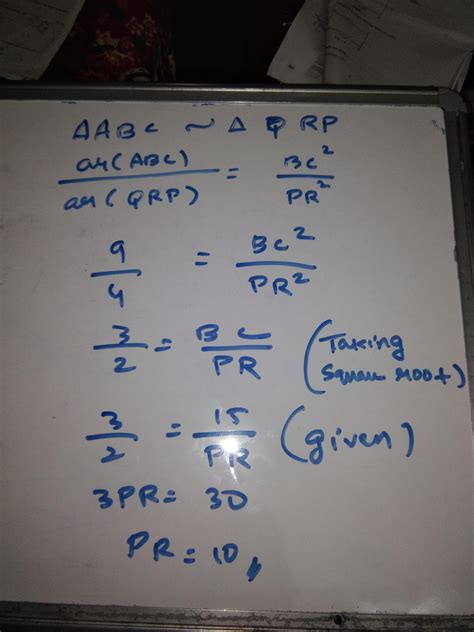 AABC ~ Δ QRP
ar(ABC) / ar(QRP) = BC² / PR²
9 / 4 = BC² / PR²
3 / 2 = BC / PR (Taking Square root)
3 / 2 = 15 / PR (given)
3PR = 30
PR = 10,